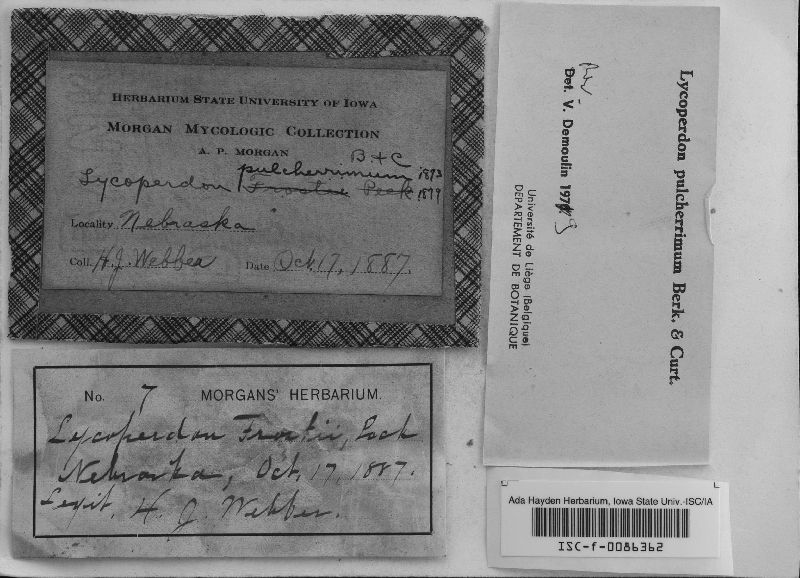 HERBARIUM STATE UNIVERSITY OF IOWA
MORGAN MYCOLOGIC COLLECTION
A. P. MORGAN
B + C
pulcherrimum 1873
Lycoperdon Frostii Peck 1879
Locality Nebraska
Coll. H. J. Webber Date Oct. 17, 1887.
No. 7 MORGANS' HERBARIUM.
Lycoperdon Frostii, Peck
Nebraska, Oct. 17, 1887.
Legit. H. J. Webber.
Lycoperdon pulcherrimum Berk. & Curt.
Rev.
Det. V. Demoulin 1979
Université de Liège (Belgique)
DEPARTEMENT DE BOTANIQUE
Ada Hayden Herbarium, Iowa State Univ.-ISC/IA
ISC-f-0086362